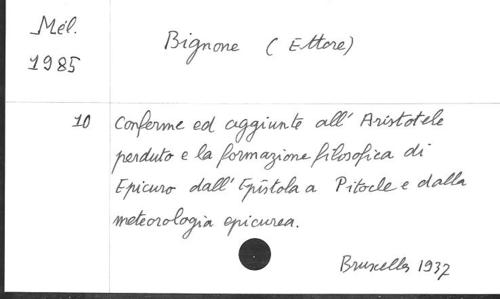 Mél.
1985
Bignone (Ettore)
10
Conferme ed aggiunte all' Aristotele
perduto e la formazione filosofica di
Epicuro dall' Epistola a Pitocle e dalla
meteorologia epicurea.
Bruxelles 1937